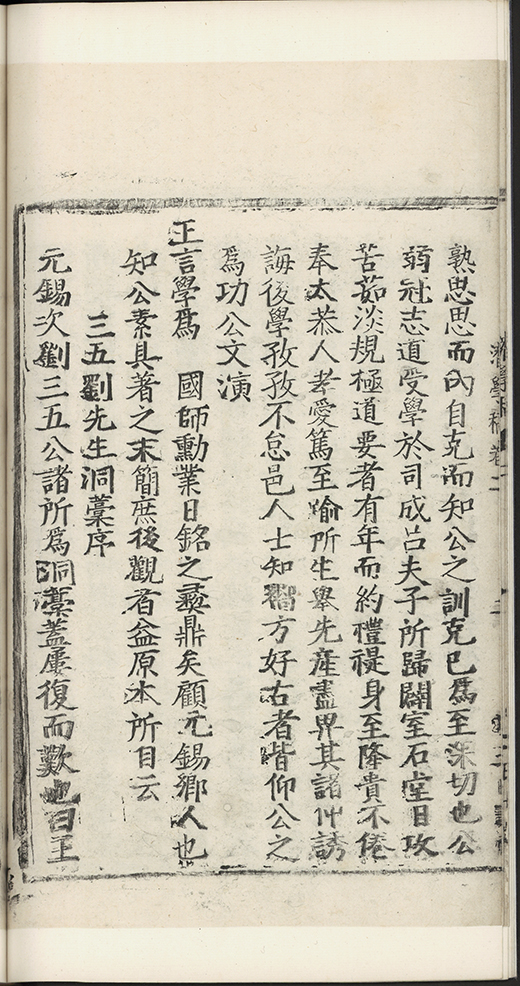 熟思思而內自克而知公之訓克已爲至深切也公
弱冠志道受學於司成呂夫子所歸闢室石堂日攻
苦茹淡規極道要者有年而約禮禔身至隆貴不倦
奉太恭人孝愛篤至喻所生舉先產盡畀其諸仲誘
誨後學孜孜不怠邑人士知嚮方好古者皆仰公之
爲功公文演
正言學爲 國師勳業日銘之彝鼎矣顧元錫鄉人也
知公素具著之末簡庶後觀者益原本所自云
三五劉先生洞藁序
元錫次劉三五公諸所爲洞藁蓋屢復而歎也曰王